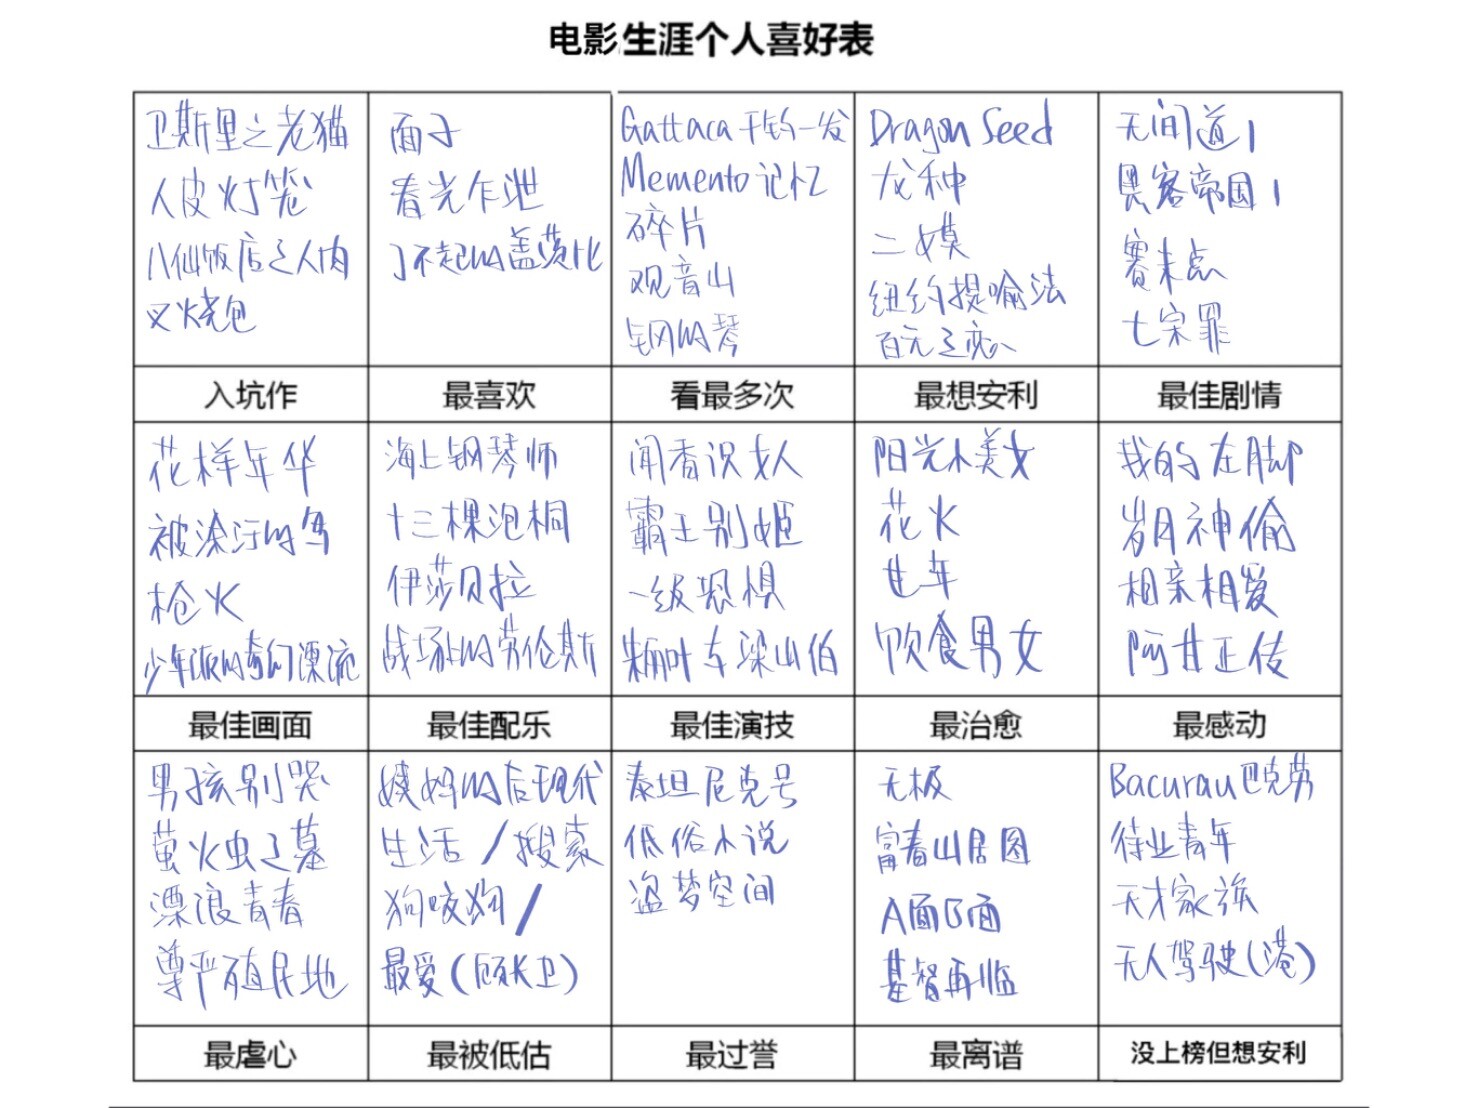 电影生涯个人喜好表
卫斯里之老猫
人皮灯笼
八仙饭店之人肉
叉烧包
入坑作
面子
春光乍泄
了不起的盖茨比
最喜欢
Gattaca 千钧一发
Memento 记忆
碎片
观音山
钢的琴
看最多次
Dragon Seed
龙种
二嫫
纽约提喻法
百元之恋
最想安利
无间道1
黑客帝国1
赛末点
七宗罪
最佳剧情
花样年华
被涂汙的鸟
枪火
少年派的奇幻漂流
最佳画面
海上钢琴师
十三棵泡桐
伊莎贝拉
战场上的劳伦斯
最佳配乐
闻香识女人
霸王别姬
一级恐惧
车梁山伯
最佳演技
阳光小美女
花火
甘年
饮食男女
最治愈
我的左脚
岁月神偷
相亲相爱
阿甘正传
最感动
男孩别哭
萤火虫之墓
漂浪青春
尊严殖民地
最虐心
姨妈的后现代
生活 / 搜索
狗咬狗 /
最爱(顾长卫)
最被低估
泰坦尼克号
低俗小说
盗梦空间
最过誉
无极
富春山居图
A面B面
基督再临
最离谱
Bacurau 巴克劳
待业青年
天才家族
无人驾驶(港)
没上榜但想安利